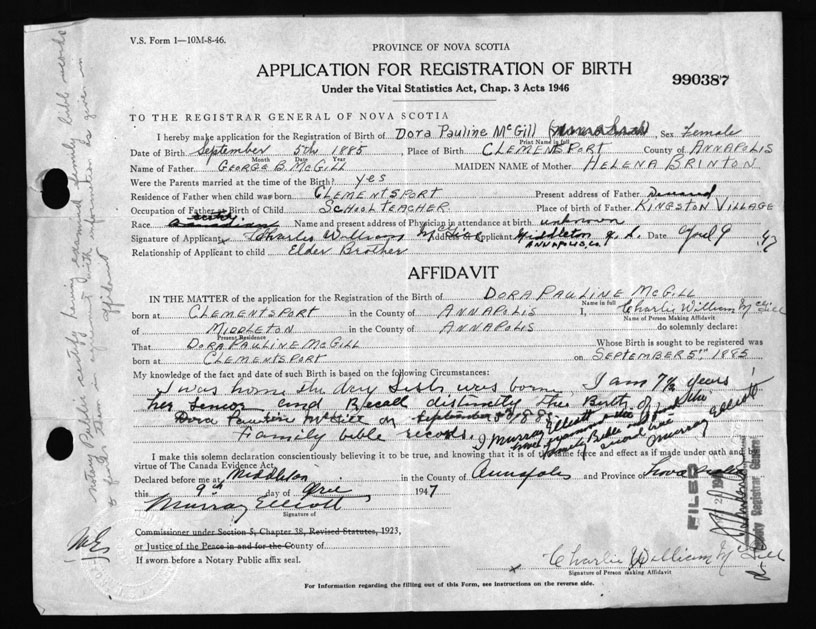 V.S. Form 1—10M-8-46.
PROVINCE OF NOVA SCOTIA
APPLICATION FOR REGISTRATION OF BIRTH
990387
Under the Vital Statistics Act, Chap. 3 Acts 1946
TO THE REGISTRAR GENERAL OF NOVA SCOTIA
I hereby make application for the Registration of Birth of Dora Pauline McGill Sex Female
Print Name in full
Date of Birth September 5th 1885, Place of Birth CLEMENTSPORT County of ANNAPOLIS
Month Date Year
Name of Father GEORGE B. McGILL MAIDEN NAME of Mother HELENA BRINTON
Were the Parents married at the time of the Birth? yes
Residence of Father when child was born CLEMENTSPORT Present address of Father
Occupation of Father at Birth of Child SCHOOL TEACHER Place of birth of Father KINGSTON VILLAGE
Race Canadian Name and present address of Physician in attendance at birth unknown
Signature of Applicant Charlie William McGill Address of Applicant Middleton N.S. Date April 9 47
ANNAPOLIS, Co.
Relationship of Applicant to child Elder Brother
AFFIDAVIT
IN THE MATTER of the application for the Registration of the Birth of DORA PAULINE McGILL
Name in full
born at CLEMENTSPORT in the County of ANNAPOLIS I, Charlie William McGill
Name of Person Making Affidavit
of MIDDLETON in the County of ANNAPOLIS do solemnly declare:
Present Residence
That DORA PAULINE McGILL Whose Birth is sought to be registered was
born at CLEMENTSPORT on SEPTEMBER 5TH 1885
My knowledge of the fact and date of such Birth is based on the following Circumstances:
I was home the day Sister was born, I am 7½ years
her senior and Recall distinctly the Birth of
Dora Pauline McGill on September 5th 1885
Family bible records.
I Murray Elliott have examined the family Bible and find this record
Murray Elliott
I make this solemn declaration conscientiously believing it to be true, and knowing that it is of the same force and effect as if made under oath and by
virtue of The Canada Evidence Act.
Declared before me at Middleton in the County of Annapolis and Province of Nova Scotia
this 9th day of April 1947
Murray Elliott
Signature of
Commissioner under Section 5, Chapter 38, Revised Statutes, 1923,
or Justice of the Peace in and for the County of
If sworn before a Notary Public affix seal.
x Charlie William McGill
Signature of Person Making Affidavit
For Information regarding the filling out of this Form, see instructions on the reverse side.
FILED
Deputy Registrar General
Notary Public certify having examined family bible records
& find them in agreement with information as given in
affidavit
M.E.